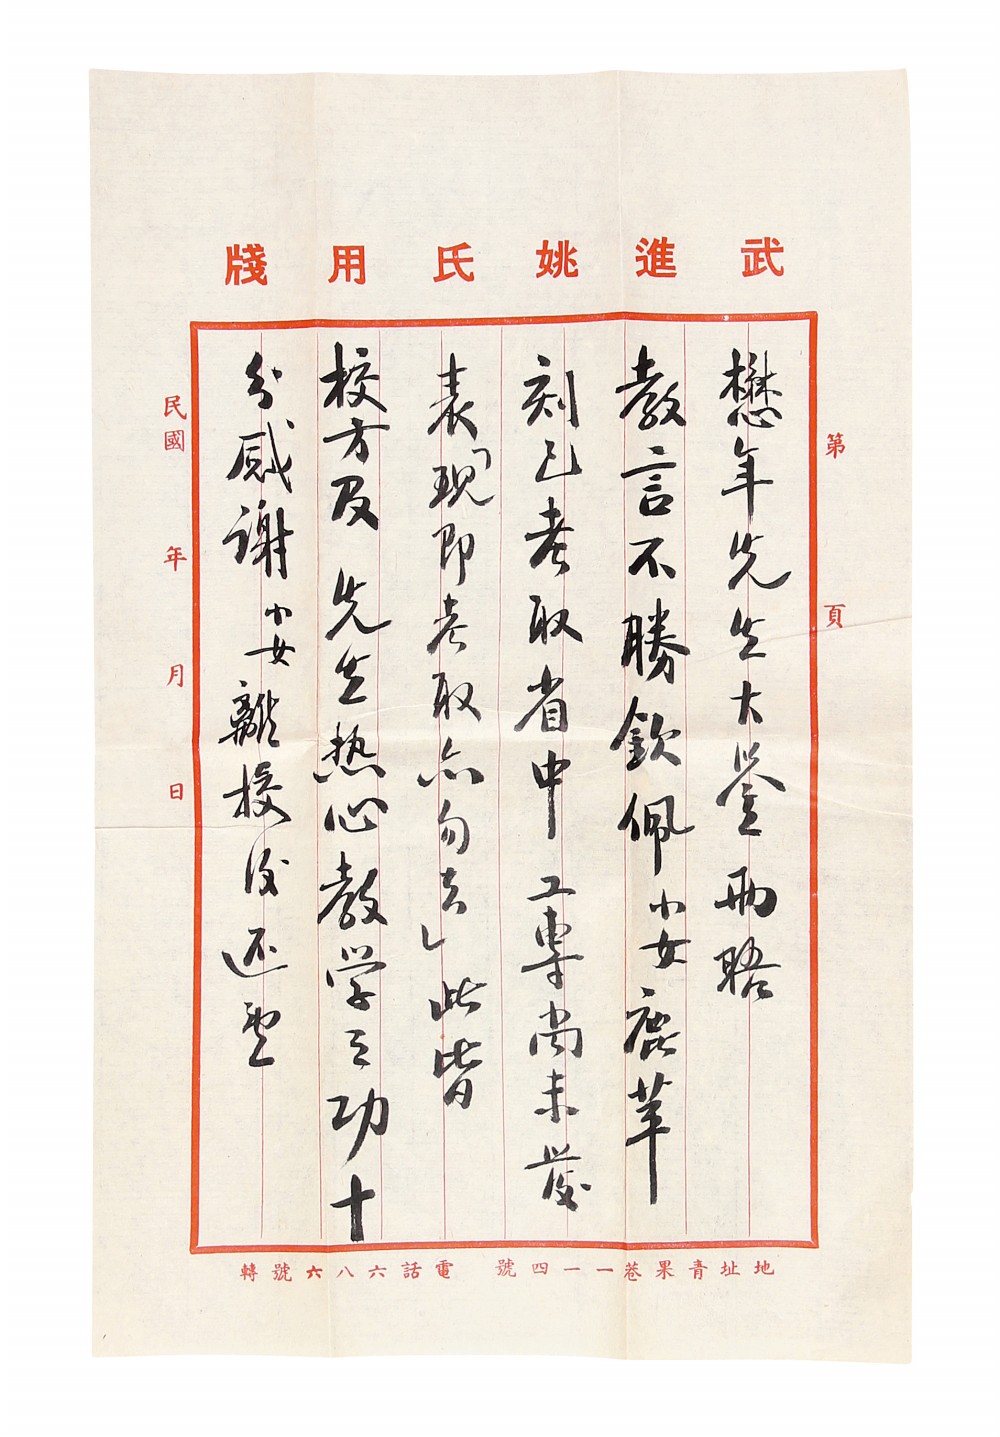 武進姚氏用牋
第 頁
懋年先生大鉴兩晤
教言不勝欽佩小女鹿苹
刻已考取省中工專尚未發
表「現即考取亦勿去」此皆
校方及 先生热心教学之功十
分感谢小女離校后还望
民國 年 月 日
地址青果巷一一四號 電話六八六號轉